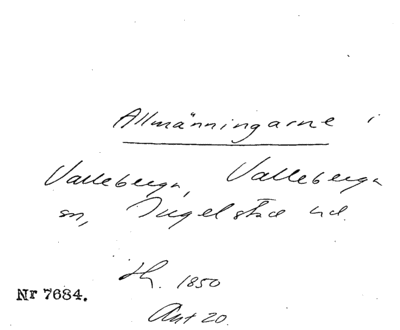 Allmänningarne i
Valleberga, Valleberga
sn, Ingelstad hd.
Nr 7684.
1850
Ant 20